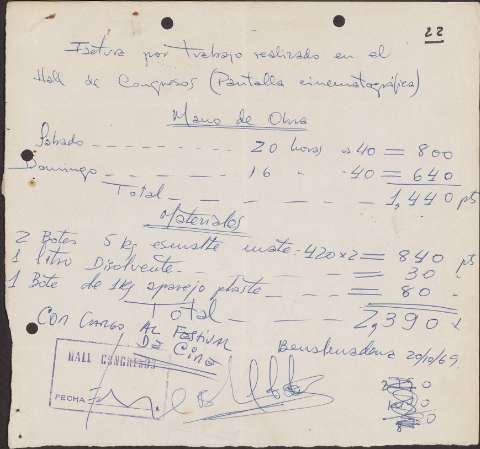 22
Factura por trabajo realizado en el
Hall de Congresos (Pantalla cinematográfica)
Mano de Obra
Sabado - - - - 20 horas a 40 = 800
Domingo - - - - 16 " 40 = 640
Total - - - - 1,440 pts
Materiales
2 Botes 5 kg esmalte mate - 420x2 = 840 pts
1 litro Disolvente - - - = 30
1 Bote de 1 kg aparejo plaste - - - = 80 "
Total - - - - 2,390 "
CON CARGO AL FESTIVAL
DE CINE
Benalmadena 20/10/69.
HALL CONGRESOS
FECHA